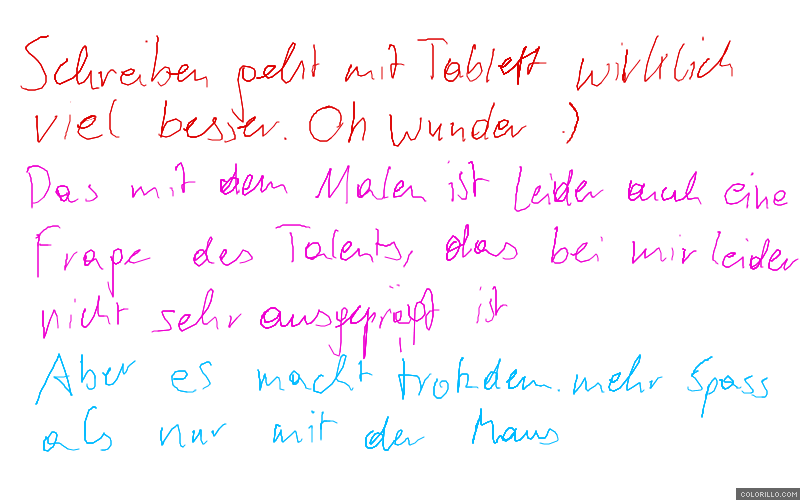 Schreiben geht mit Tablett wirklich
viel besser. Oh Wunder :)
Das mit dem Malen ist leider auch eine
Frage des Talents, das bei mir leider
nicht sehr ausgeprägt ist
Aber es macht trotzdem mehr Spass
als nur mit der Maus
COLORILLO.COM